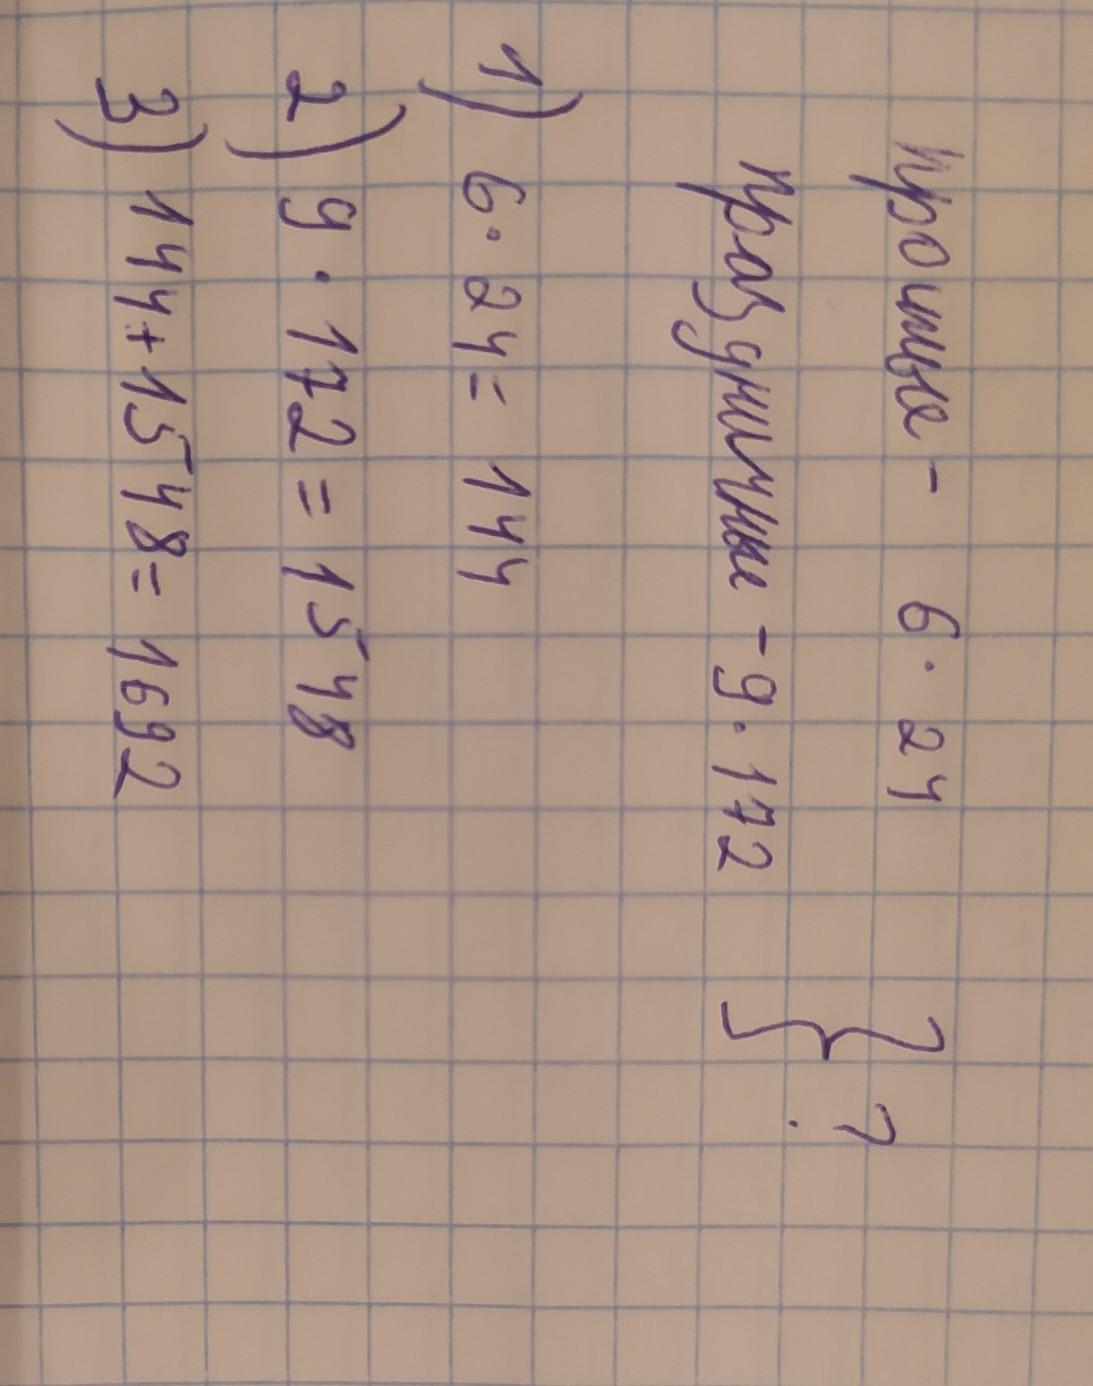 простые - 6 · 24
праздничные - 9 · 172
} ?
1) 6 · 24 = 144
2) 9 · 172 = 1548
3) 144 + 1548 = 1692